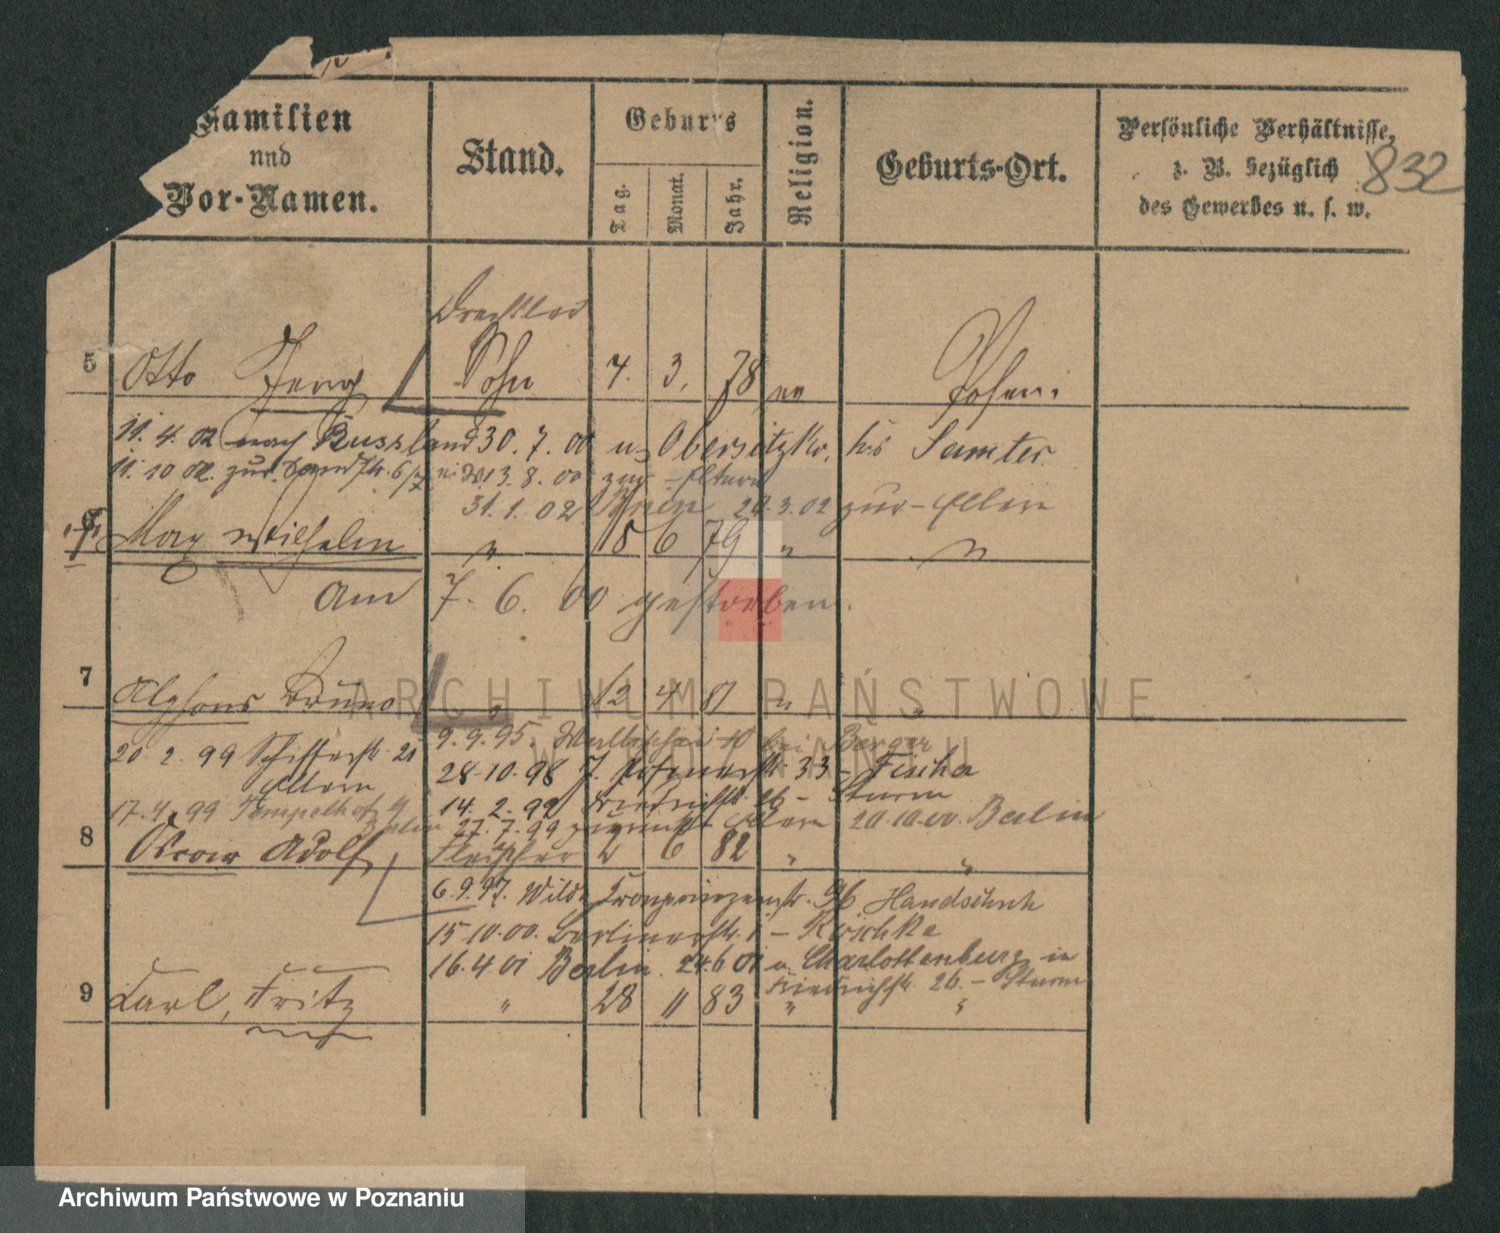 Familien
und
Vor-Namen.
Stand.
Geburts
Tag.
Monat.
Jahr.
Religion.
Geburts-Ort.
Persönliche Verhältnisse,
z. B. bezüglich
des Gewerbes u. s. w.
832
5 Otto Sohn 7. 3. 78 Posen
11. 4. 02 nach Russland 30. 7. 00 Obersitzko, Samter
11. 10 02. zur. 13. 8. 00 zur Eltern
31. 1. 02 20. 3. 02 zur Eltern
6 Max Wilhelm " 15 6 79 " "
am 7. 6. 00 gestorben.
7 Alphons Bruno " 12 4 81 " "
9. 9. 95. bei Berger
20. 2. 99 Schifferstr. 21 28. 10. 98 33 - Fischer
Eltern 14. 2. 99 Friedrichstr. 26 - Sturm
17. 4. 99 Tempelhof Berlin 27. 7. 99 zurück Eltern 20. 10. 00. Berlin
8 Oscar Adolf Fleischer 2 6 82 " "
6. 9. 97. Wilda Kronprinzenstr. 96 Handschuh
15 10. 00. Berlinerstr. 1 -
16. 4 01 Berlin. 24. 6 01 a. Charlottenburg in
Friedrichstr. 26. - Sturm
9 Carl, Fritz " 28 11 83 " "
ARCHIWUM PAŃSTWOWE
W POZNANIU
Archiwum Państwowe w Poznaniu